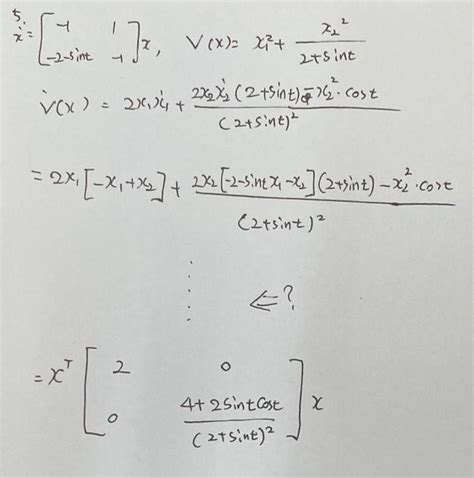 5.
ẋ = [ -1 1 ; -2-sint -1 ] x, V(x) = x₁² + x₂² / (2+sint)
V̇(x) = 2x₁ẋ₁ + (2x₂ẋ₂(2+sint) - x₂²·cost) / (2+sint)²
= 2x₁[-x₁+x₂] + (2x₂[-2-sint x₁-x₂](2+sint) - x₂²·cost) / (2+sint)²
⇐?
= xᵀ [ 2 0 ; 0 (4+2sint cost) / (2+sint)² ] x